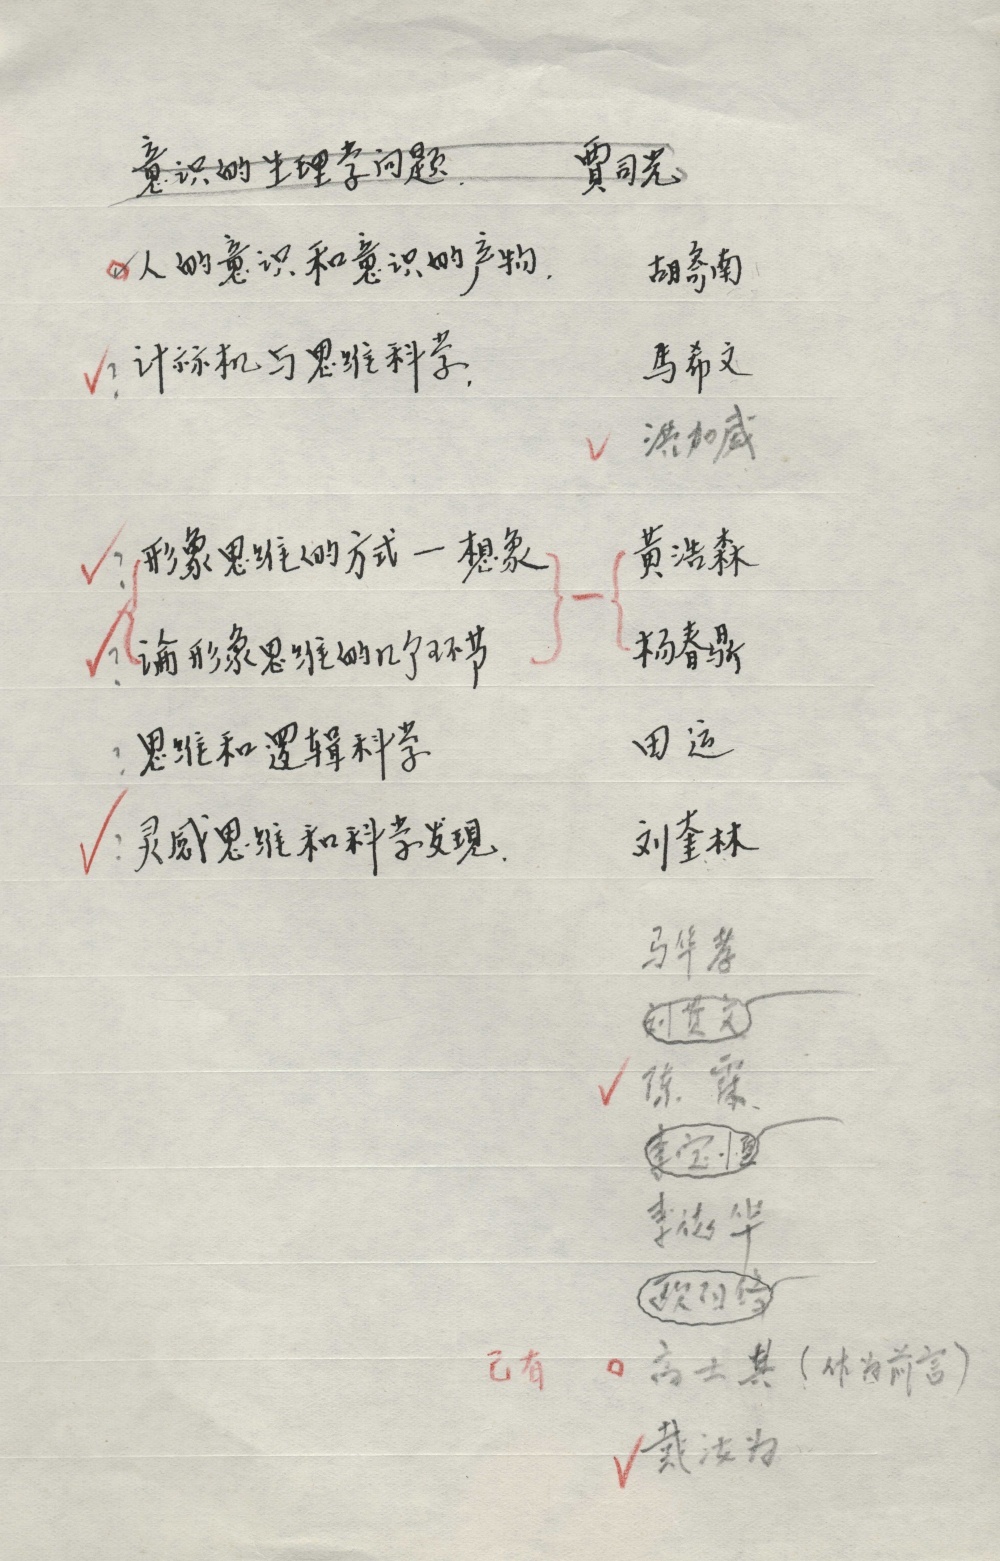 意识的生理学问题. 贾司光
人的意识和意识的产物. 胡寄南
? 计祘机与思维科学. 马希文
洪加威
? 形象思维的方式一想象 黄浩森
? 论形象思维的几个环节 杨春鼎
? 思维和逻辑科学 田运
? 灵感思维和科学发现. 刘奎林
马华孝
刘贯文
陈霖.
李宝恒
李德华
欧阳
已有 高士其(作为前言)
戴汝为